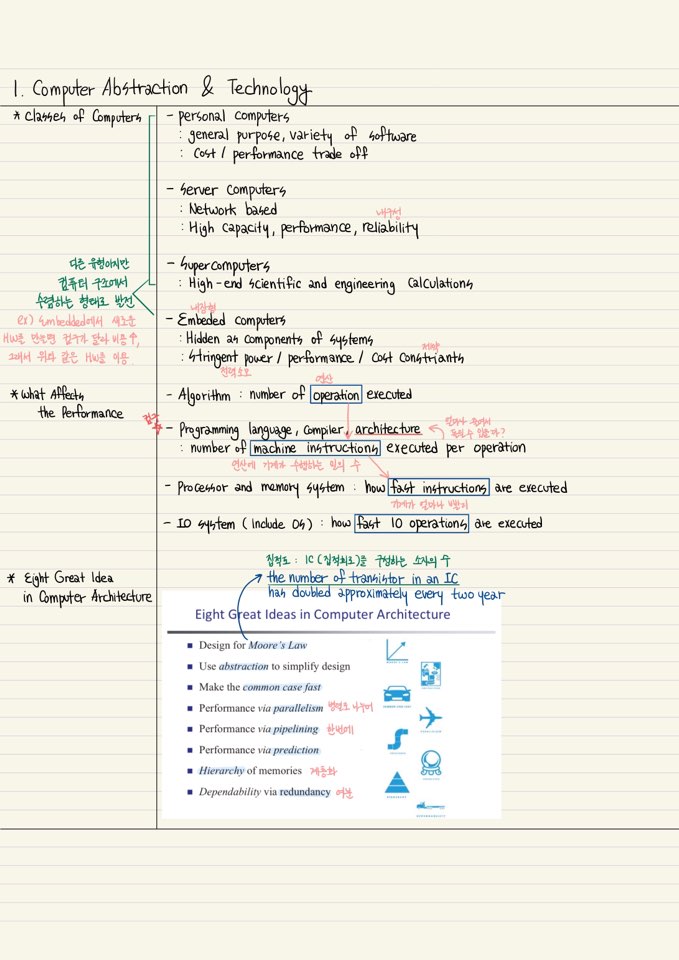 1. Computer Abstraction & Technology
* Classes of Computers
- personal computers
: general purpose, variety of software
: Cost / performance trade off
- Server Computers
: Network based
내구성
: High capacity, performance, reliability
- Supercomputers
: High-end scientific and engineering Calculations
다른 유형이지만
컴퓨터 구조에서
수렴하는 형태로 발전
ex) Embedded에서 새로운
HW를 만들면
비용↑,
그래서 위와 같은 HW를 이용.
내장형
- Embeded computers
: Hidden as components of systems
제약
: Stringent power / performance / Cost Constriants
전력소모
* What Affects
the Performance
연산
- Algorithm : number of operation executed
- Programming language, compiler, architecture
: number of machine instructions executed per operation
연산에 기계가 수행하는 일의 수
- Processor and memory system : how fast instructions are executed
기계가 얼마나 빨리
- IO system (include OS) : how fast IO operations are executed
* Eight Great Idea
in Computer Architecture
집적도 : IC (집적회로)를 구성하는 소자의 수
the number of transistor in an IC
has doubled approximately every two year
Eight Great Ideas in Computer Architecture
■ Design for Moore's Law
■ Use abstraction to simplify design
■ Make the common case fast
■ Performance via parallelism 병렬로 나누어
■ Performance via pipelining 한번에
■ Performance via prediction
■ Hierarchy of memories 계층화
■ Dependability via redundancy 여분